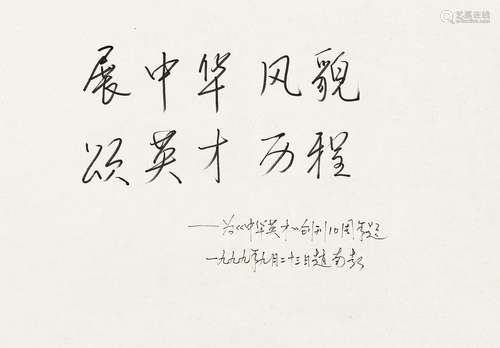 艺狐在线
展中华风貌
颂英才历程
——为《中华英才》创刊10周年题
一九九九年九月二十三日赵南起